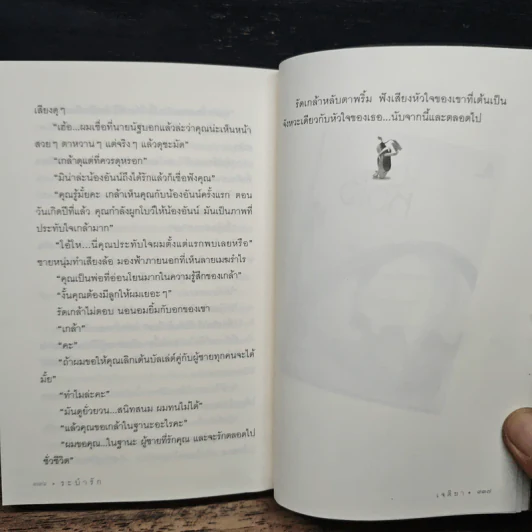 เสียงดุๆ
“เฮ้อ...ผมเชื่อที่นายนัฐบอกแล้วล่ะว่าคุณน่ะเห็นหน้า
สวยๆ ตาหวานๆ แต่จริงๆ แล้วดุชะมัด”
“เกล้าดุแต่ที่ควรดุหรอก”
“มิน่าล่ะน้องอันน์ถึงได้รักแล้วก็เชื่อฟังคุณ”
“คุณรู้มั้ยคะ เกล้าเห็นคุณกับน้องอันน์ครั้งแรก ตอน
วันเกิดปีที่แล้ว คุณกำลังผูกโบว์ให้น้องอันน์ มันเป็นภาพที่
ประทับใจเกล้ามาก”
“โอ้โห...นี่คุณประทับใจผมตั้งแต่แรกพบเลยหรือ”
ชายหนุ่มทำเสียงล้อ มองฟ้าภายนอกที่เห็นลายเมฆรำไร
“คุณเป็นพ่อที่อ่อนโยนมากในความรู้สึกของเกล้า”
“งั้นคุณต้องมีลูกให้ผมเยอะๆ”
รัดเกล้าไม่ตอบ นอนอมยิ้มกับอกของเขา
“เกล้า”
“คะ”
“ถ้าผมขอให้คุณเลิกเต้นบัลเล่ต์คู่กับผู้ชายทุกคนจะได้
มั้ย”
“ทำไมล่ะคะ”
“มันดูยั่วยวน...สนิทสนม ผมทนไม่ได้”
“แล้วคุณขอเกล้าในฐานะอะไรคะ”
“ผมขอคุณ...ในฐานะ ผู้ชายที่รักคุณ และจะรักตลอดไป
ชั่วชีวิต”
• ระบำรัก
รัดเกล้าหลับตาพริ้ม ฟังเสียงหัวใจของเขาที่เต้นเป็น
จังหวะเดียวกับหัวใจของเธอ...นับจากนี้และตลอดไป
•